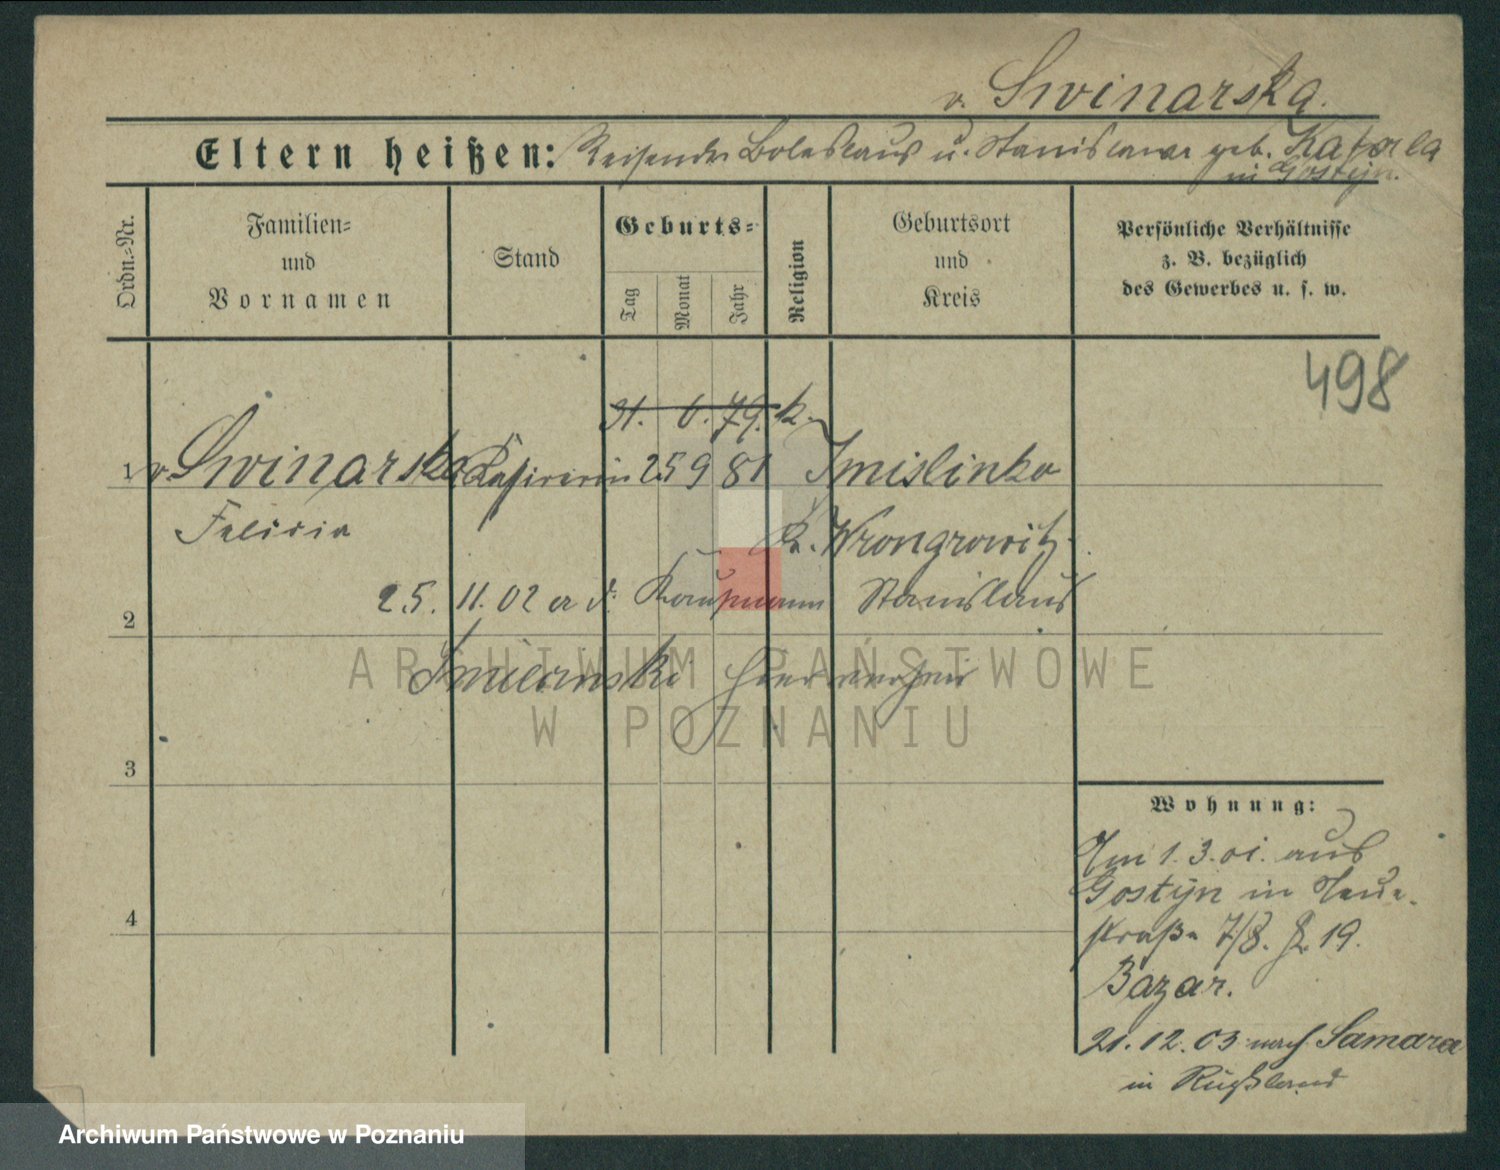 v. Swinarska.
Eltern heißen: Reisender Boleslaus u. Stanislawa geb.
in Gostyn.
Ordn.-Nr.
Familien-
und
Vornamen
Stand
Geburts-
Tag
Monat
Jahr
Religion
Geburtsort
und
Kreis
Persönliche Verhältnisse
z. B. bezüglich
des Gewerbes u. s. w.
498
31. 6. 79. k.
1 v. Swinarska Kassirerin 25 9 81 Imislinko
Felicia
Kr. Wrongrowitz
2 25. 11. 02 Kaufmann Stanislaus
hier
ARCHIWUM PAŃSTWOWE
W POZNANIU
3
4
Wohnung:
Am 1. 3. 01. aus
Gostyn in Neue-
straße 7/8. 19.
Bazar.
21. 12. 03 nach Samara
in Rußland
Archiwum Państwowe w Poznaniu